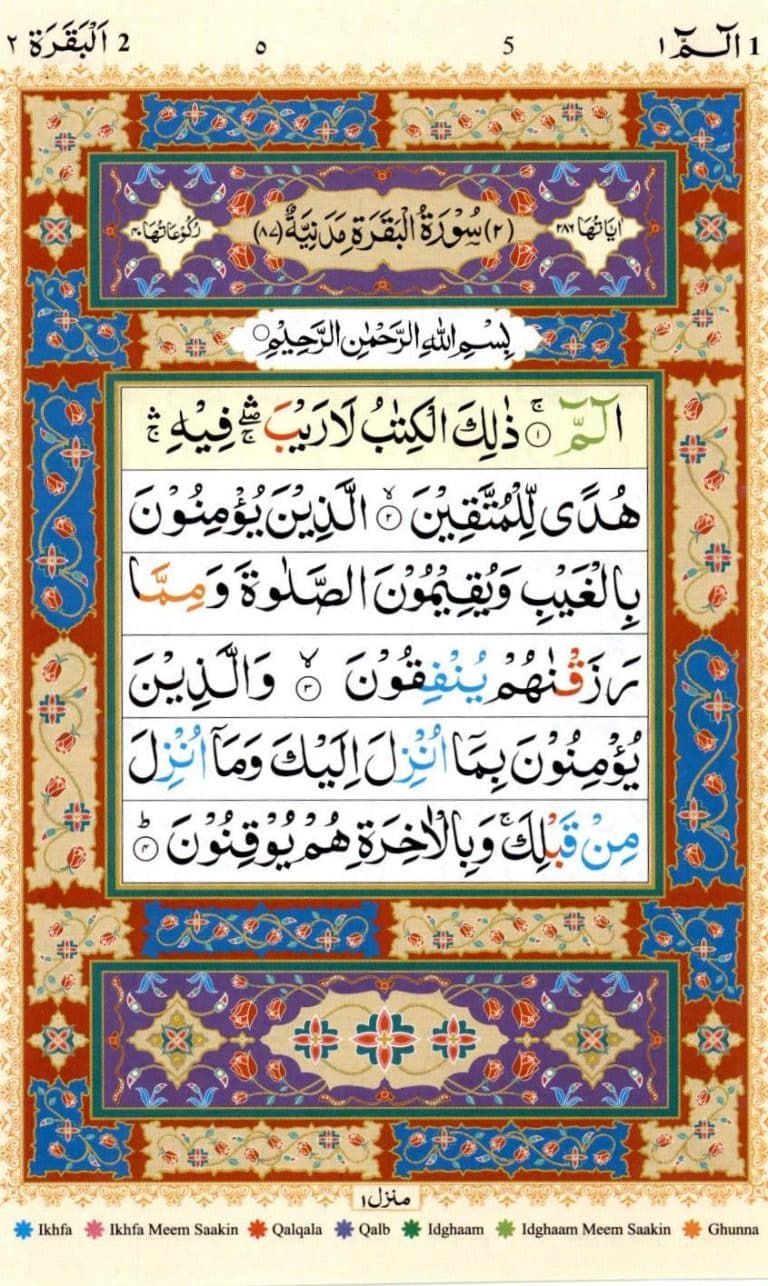 1 الٓـمّٓ ١ 5 ٥ 2 اَلْبَقَرَة ٢
اٰيَاتُهَا ٢٨٦ (٢) سُوْرَةُ الْبَقَرَةِ مَدَنِيَّةٌ (٨٧) رُكُوْعَاتُهَا ٤٠
بِسْمِ اللّٰهِ الرَّحْمٰنِ الرَّحِيْمِ
الٓـمّٓ ۚ ۝١ ذٰلِكَ الْكِتٰبُ لَا رَيْبَ ۛۖۚ فِيْهِ ۛۚ
هُدًى لِّلْمُتَّقِيْنَ ۙ ۝٢ الَّذِيْنَ يُؤْمِنُوْنَ
بِالْغَيْبِ وَيُقِيْمُوْنَ الصَّلٰوةَ وَمِمَّا
رَزَقْنٰهُمْ يُنْفِقُوْنَ ۙ ۝٣ وَالَّذِيْنَ
يُؤْمِنُوْنَ بِمَآ اُنْزِلَ اِلَيْكَ وَمَآ اُنْزِلَ
مِنْ قَبْلِكَ ۚ وَبِالْاٰخِرَةِ هُمْ يُوْقِنُوْنَ ؕ ۝٤
منزل ١
Ikhfa Ikhfa Meem Saakin Qalqala Qalb Idghaam Idghaam Meem Saakin Ghunna